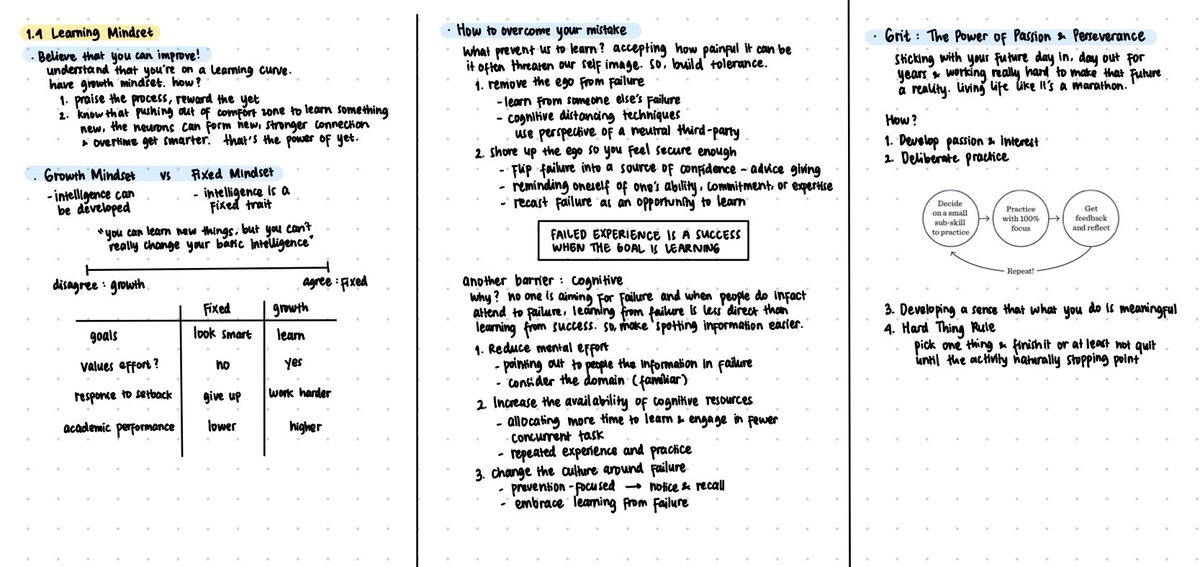 1.4 Learning Mindset
· Believe that you can improve!
understand that you're on a learning curve.
have growth mindset. how?
1. praise the process, reward the yet
2. know that pushing out of comfort zone to learn something
new, the neurons can form new, stronger connection
& overtime get smarter. that's the power of yet.
· Growth Mindset vs Fixed Mindset
- intelligence can be developed
- intelligence is a fixed trait
"you can learn new things, but you can't
really change your basic intelligence"
disagree : growth
agree : fixed
Fixed growth
goals look smart learn
values effort? no yes
responce to setback give up work harder
academic performance lower higher
· How to overcome your mistake
What prevent us to learn? accepting how painful it can be
it often threaten our self image. so, build tolerance.
1. remove the ego from failure
- learn from someone else's failure
- cognitive distancing techniques
use perspective of a neutral third-party
2. Shore up the ego so you feel secure enough
- Flip failure into a source of confidence - advice giving
- reminding oneself of one's ability, commitment, or expertise
- recast failure as an opportunity to learn
FAILED EXPERIENCE IS A SUCCESS
WHEN THE GOAL IS LEARNING
another barrier : cognitive
Why? no one is aiming for failure and when people do infact
attend to failure, learning from failure is less direct than
learning from success. so, make spotting information easier.
1. Reduce mental effort
- pointing out to people the information in failure
- consider the domain (familiar)
2. Increase the availability of cognitive resources
- allocating more time to learn & engage in fewer
concurrent task
- repeated experience and practice
3. Change the culture around failure
- prevention-focused → notice & recall
- embrace learning from failure
· Grit : The Power of Passion & Perseverance
Sticking with your future day in, day out for
years & working really hard to make that future
a reality. living life like it's a marathon.
How?
1. Develop passion & interest
2. Deliberate practice
Decide
on a small
sub-skill
to practice
Practice
with 100%
focus
Get
feedback
and reflect
Repeat!
3. Developing a sense that what you do is meaningful
4. Hard Thing Rule
pick one thing & finish it or at least not quit
until the activity naturally stopping point